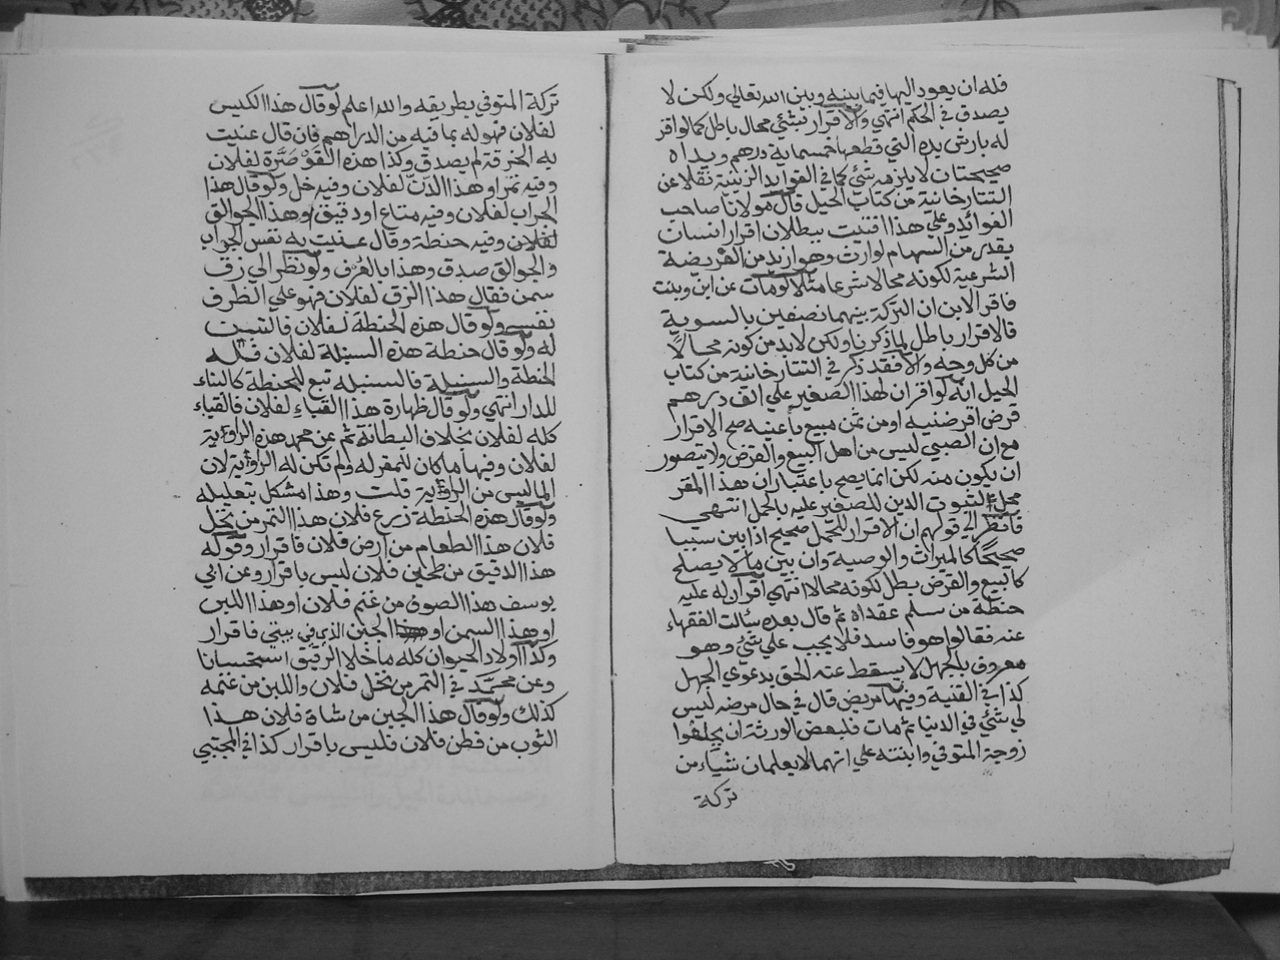 فله ان يعود اليها فيما بينه وبين الله تعالي ولكن لا
يصدق في الحكم انتهي والاقرار بشئي محال باطل كما لو اقر
له بارش يده التي قطعها خمسماية درهم ويداه
صحيحتان لا يلزمه شئي كما في الفوايد الزينية نقلا عن
التتارخانية من كتاب الحيل قال مولانا صاحب
الفوائد وعلي هذا افتيت ببطلان اقرار انسان
بقدر من السهام لوارث وهو ازيد من الفريضة
الشرعية لكونه محالا شرعا مثلا لو مات عن ابن وبنت
فاقر الابن ان التركة بينهما نصفين بالسوية
فالاقرار باطل لما ذكرنا ولكن لا بد من كونه محالًا
من كل وجه والا فقد ذكر في التتارخانية من كتاب
الحيل انه لو اقر ان لهذا الصغير علي الف درهم
قرض اقرضنيه او من ثمن مبيع باعنيه صح الاقرار
مع ان الصبي ليس من اهل البيع والقرض ولا يتصور
ان يكون منه لكن انما يصح باعتبار ان هذا المقر
محل لثبوت الدين للصغير عليه بالحمل انتهي
فانظر الي قولهم ان الاقرار للحمل صحيح اذا بين سببا
صحيحًا كالميراث والوصية وان بين ما لا يصلح
كالبيع والقرض بطل لكونه محالا انتهي اقر ان له عليه
حنطة من سلم عقداه ثم قال بعده سئالت الفقهاء
عنه فقالوا هو فاسد فلا يجب علي شئي وهو
معروف بالجهل لا يسقط عنه الحق بدعوي الجهل
كذا في القنية وفيها مريض قال في حال مرضه ليس
لي شئي في الدنيا ثم مات فلبعض الورثة ان يحلفوا
زوجة المتوفي وابنته علي انهما لا يعلمان شياء من
تركة
تركة المتوفي بطريقه والله اعلم لو قال هذا الكيس
لفلان فهو له بما فيه من الدراهم فان قال عنيت
به الخرقة لم يصدق وكذا هذه القوصرة لفلان
وفيه تمر او هذا الدن لفلان وفيه خل ولو قال هذا
الجراب لفلان وفيه متاع او دقيق او هذا الجوالق
لفلان وفيه حنطة وقال عنيت به نفس الجراب
والجوالق صدق وهذا بالعرف ولو نظر الي زق
سمن فقال هذا الزق لفلان فهو علي الظرف
نفسه ولو قال هذه الحنطة لفلان فالتبن
له ولو قال حنطة هذه السنبلة لفلان فله
الحنطة والسنبلة فالسنبله تبع للحنطة كالبناء
للدار انتهي ولو قال ظهارة هذا القباء لفلان فالقباء
كله لفلان بخلاف البطانة ثم عن محمد هذه الراوية
لفلان وفيها ما كان للمقر له ولم تكن له الراوية لان
الما ليس من الراوية قلت وهذا مشكل بتعليله
ولو قال هذه الحنطة زرع فلان هذا التمر من نخل
فلان هذا الطعام من ارض فلان فاقرار وقوله
هذا الدقيق من طحين فلان ليس باقرار وعن ابي
يوسف هذا الصوف من غنم فلان او هذا اللبن
او هذا السمن او الجبن الذي في بيتي فاقرار
وكذا اولاد الحيوان كله ما خلا الرقيق استحسانا
وعن محمد في التمر من نخل فلان واللبن من غنمه
كذلك ولو قال هذا الجبن من شاة فلان هذا
الثوب من قطن فلان فليس باقرار كذا في المجتبي